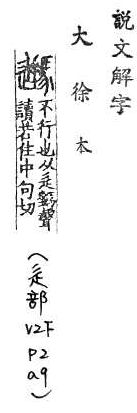 説文解字
大徐本
不行也从辵聲
讀若住中句切
(辵部
V2下
P2
a9)